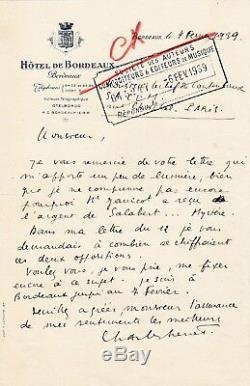 HÔTEL DE BORDEAUX
Bordeaux
Bordeaux, le 4 février 1939
SOCIÉTÉ DES AUTEURS
COMPOSITEURS & ÉDITEURS DE MUSIQUE
6 FEV 1939
Paris
Monsieur,
Je vous remercie de votre lettre qui
m'apporte un peu de lumière, bien
que je ne comprenne pas encore
pourquoi Mr Janicot a reçu
l'argent de Salabert ... Mystère.
Dans ma lettre du 12 je vous
demandais à combien se chiffraient
ces deux oppositions.
Voulez vous, je vous prie, me fixer
encore à ce sujet. Je suis à
Bordeaux jusqu'au 7 février.
Veuillez agréer monsieur l'assurance
de mes sentiments les meilleurs
Charles